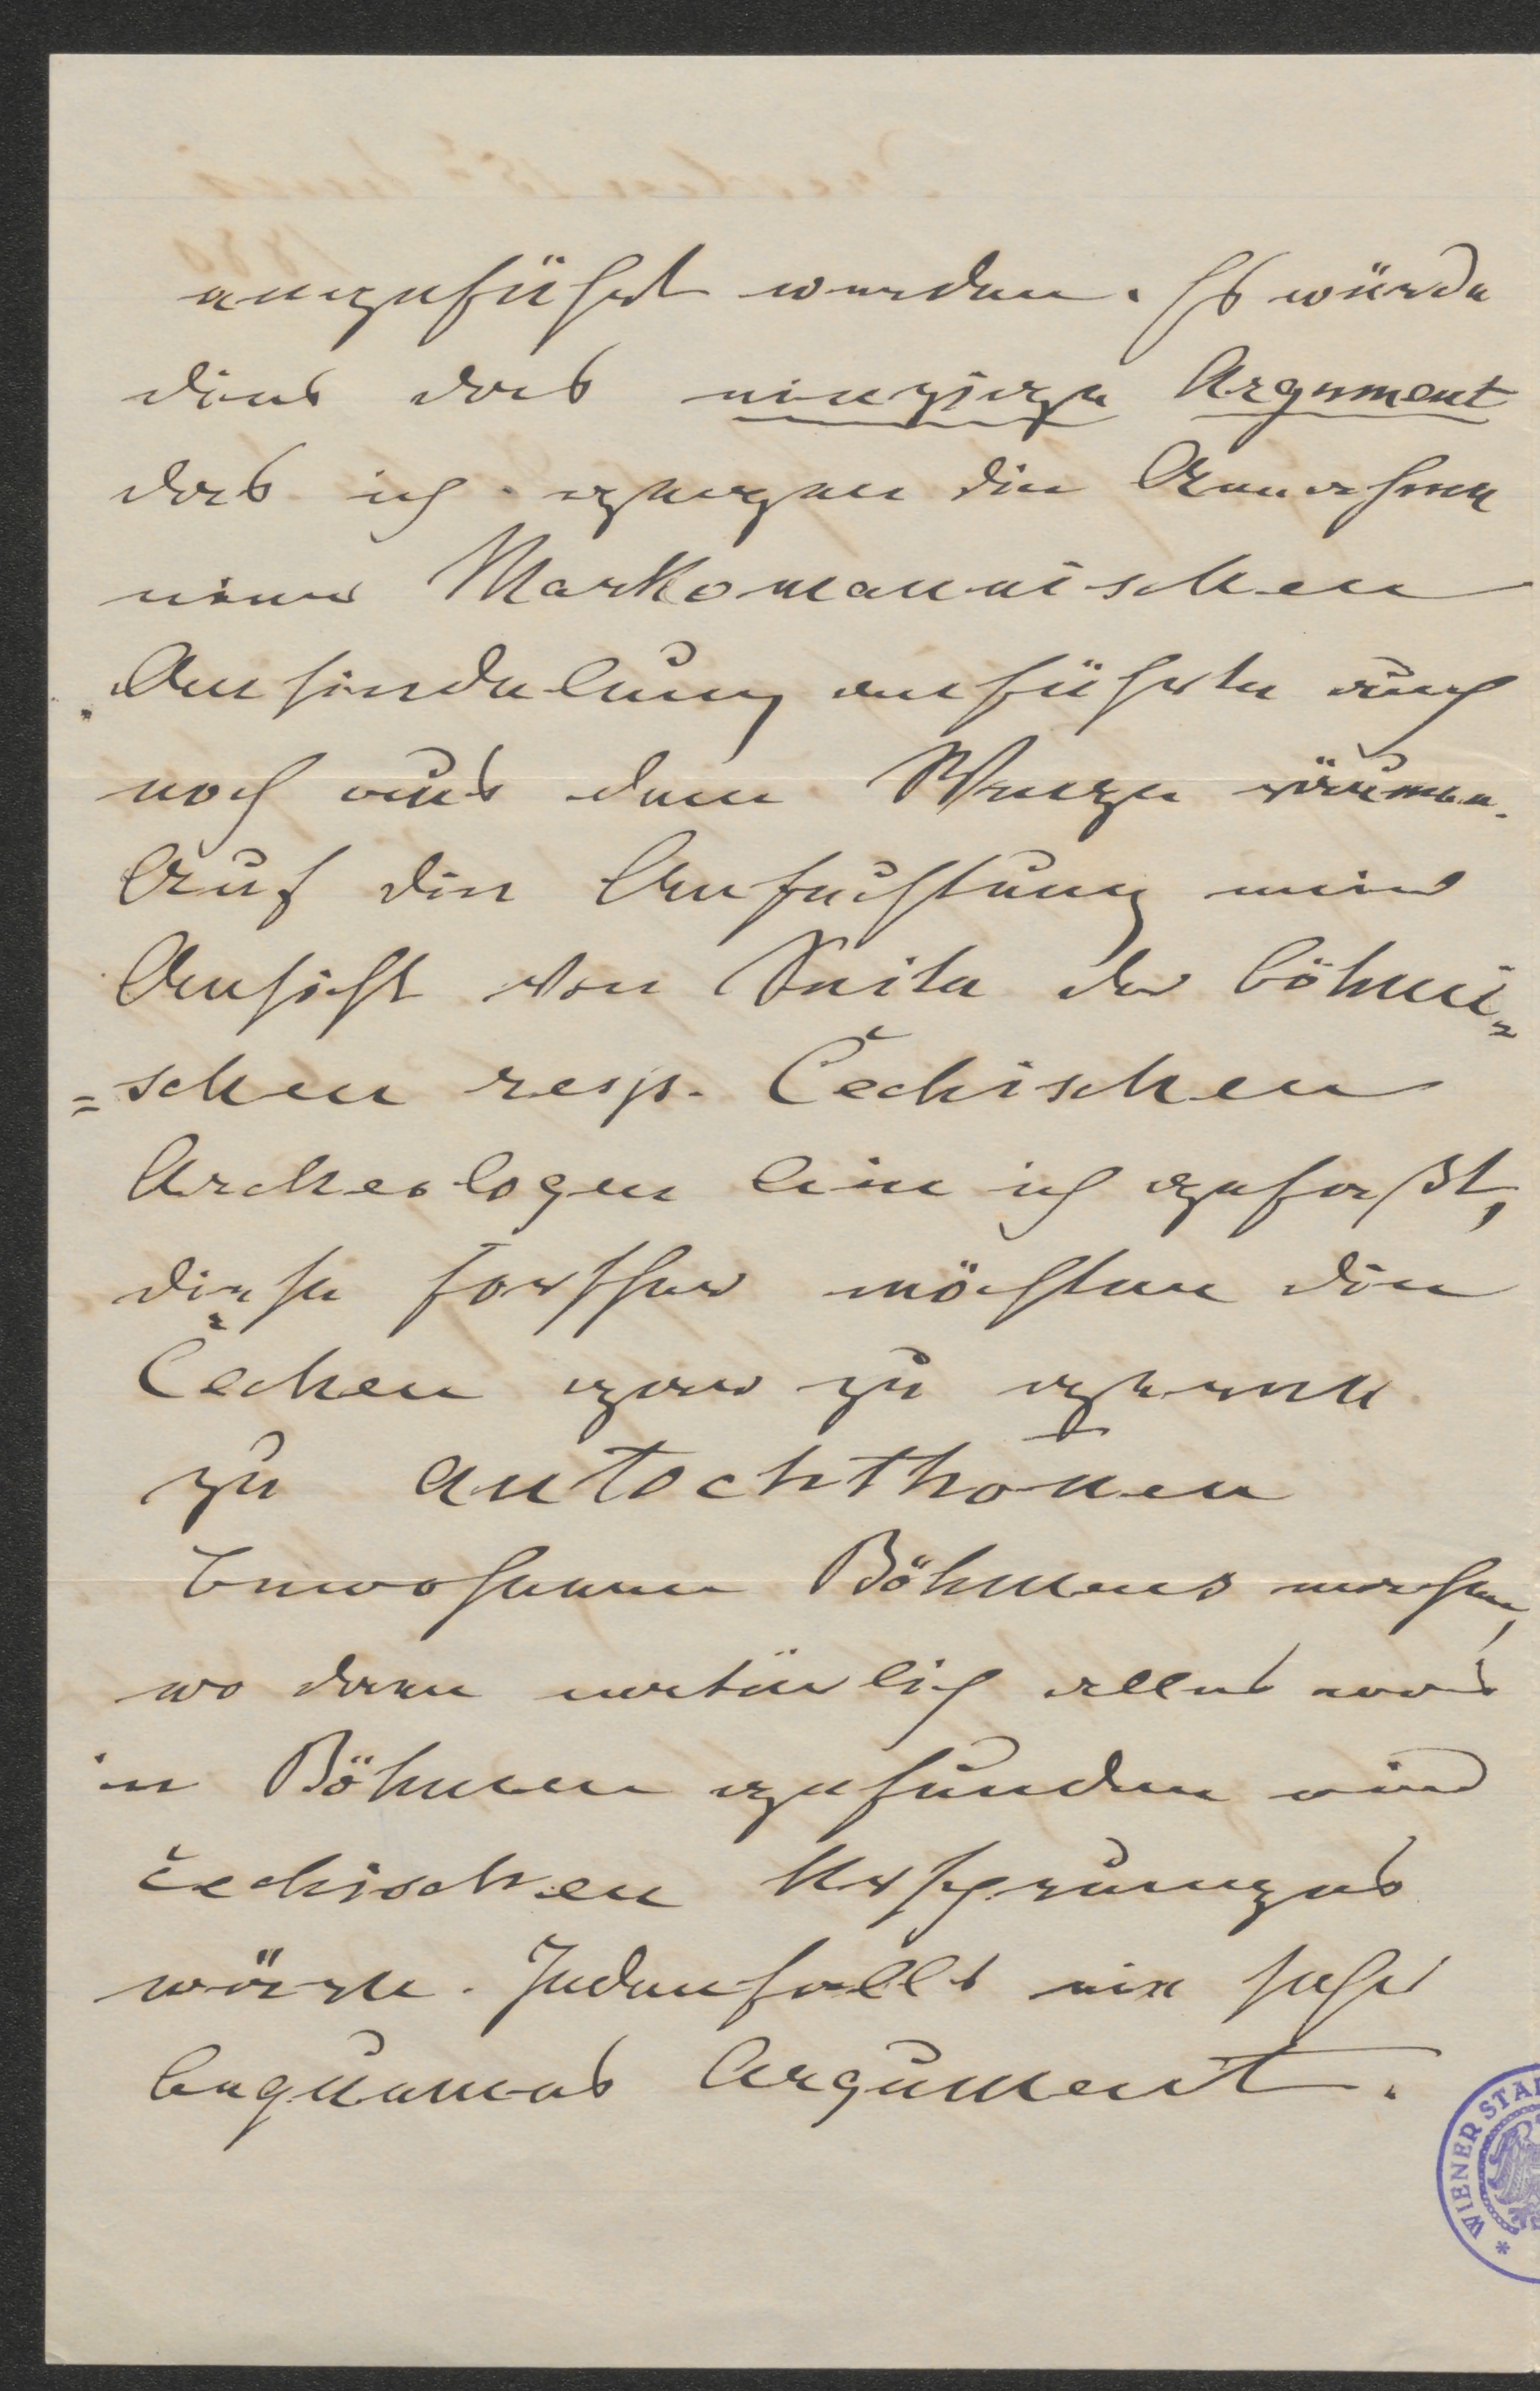 angeführt werden. Es würde
dies das einzige Argument
das ich gegen die Annahme
einer Markomannischen
Ansiedelung anführte auch
noch aus dem Wege räumen.
Auf die Anfechtung meiner
Ansicht von Seite der böhmi=
=schen resp. Čechischen
Archeologen bin ich gefaßt,
diese Forscher möchten die
Čechen gar zu gerne
zu autochthonen
Bewohnern Böhmens machen,
wo dann natürlich alles was
in Böhmen gefunden wird
čechischen Ursprunges
wäre. Jedenfalls ein sehr
bequemes Argument.
WIENER STA